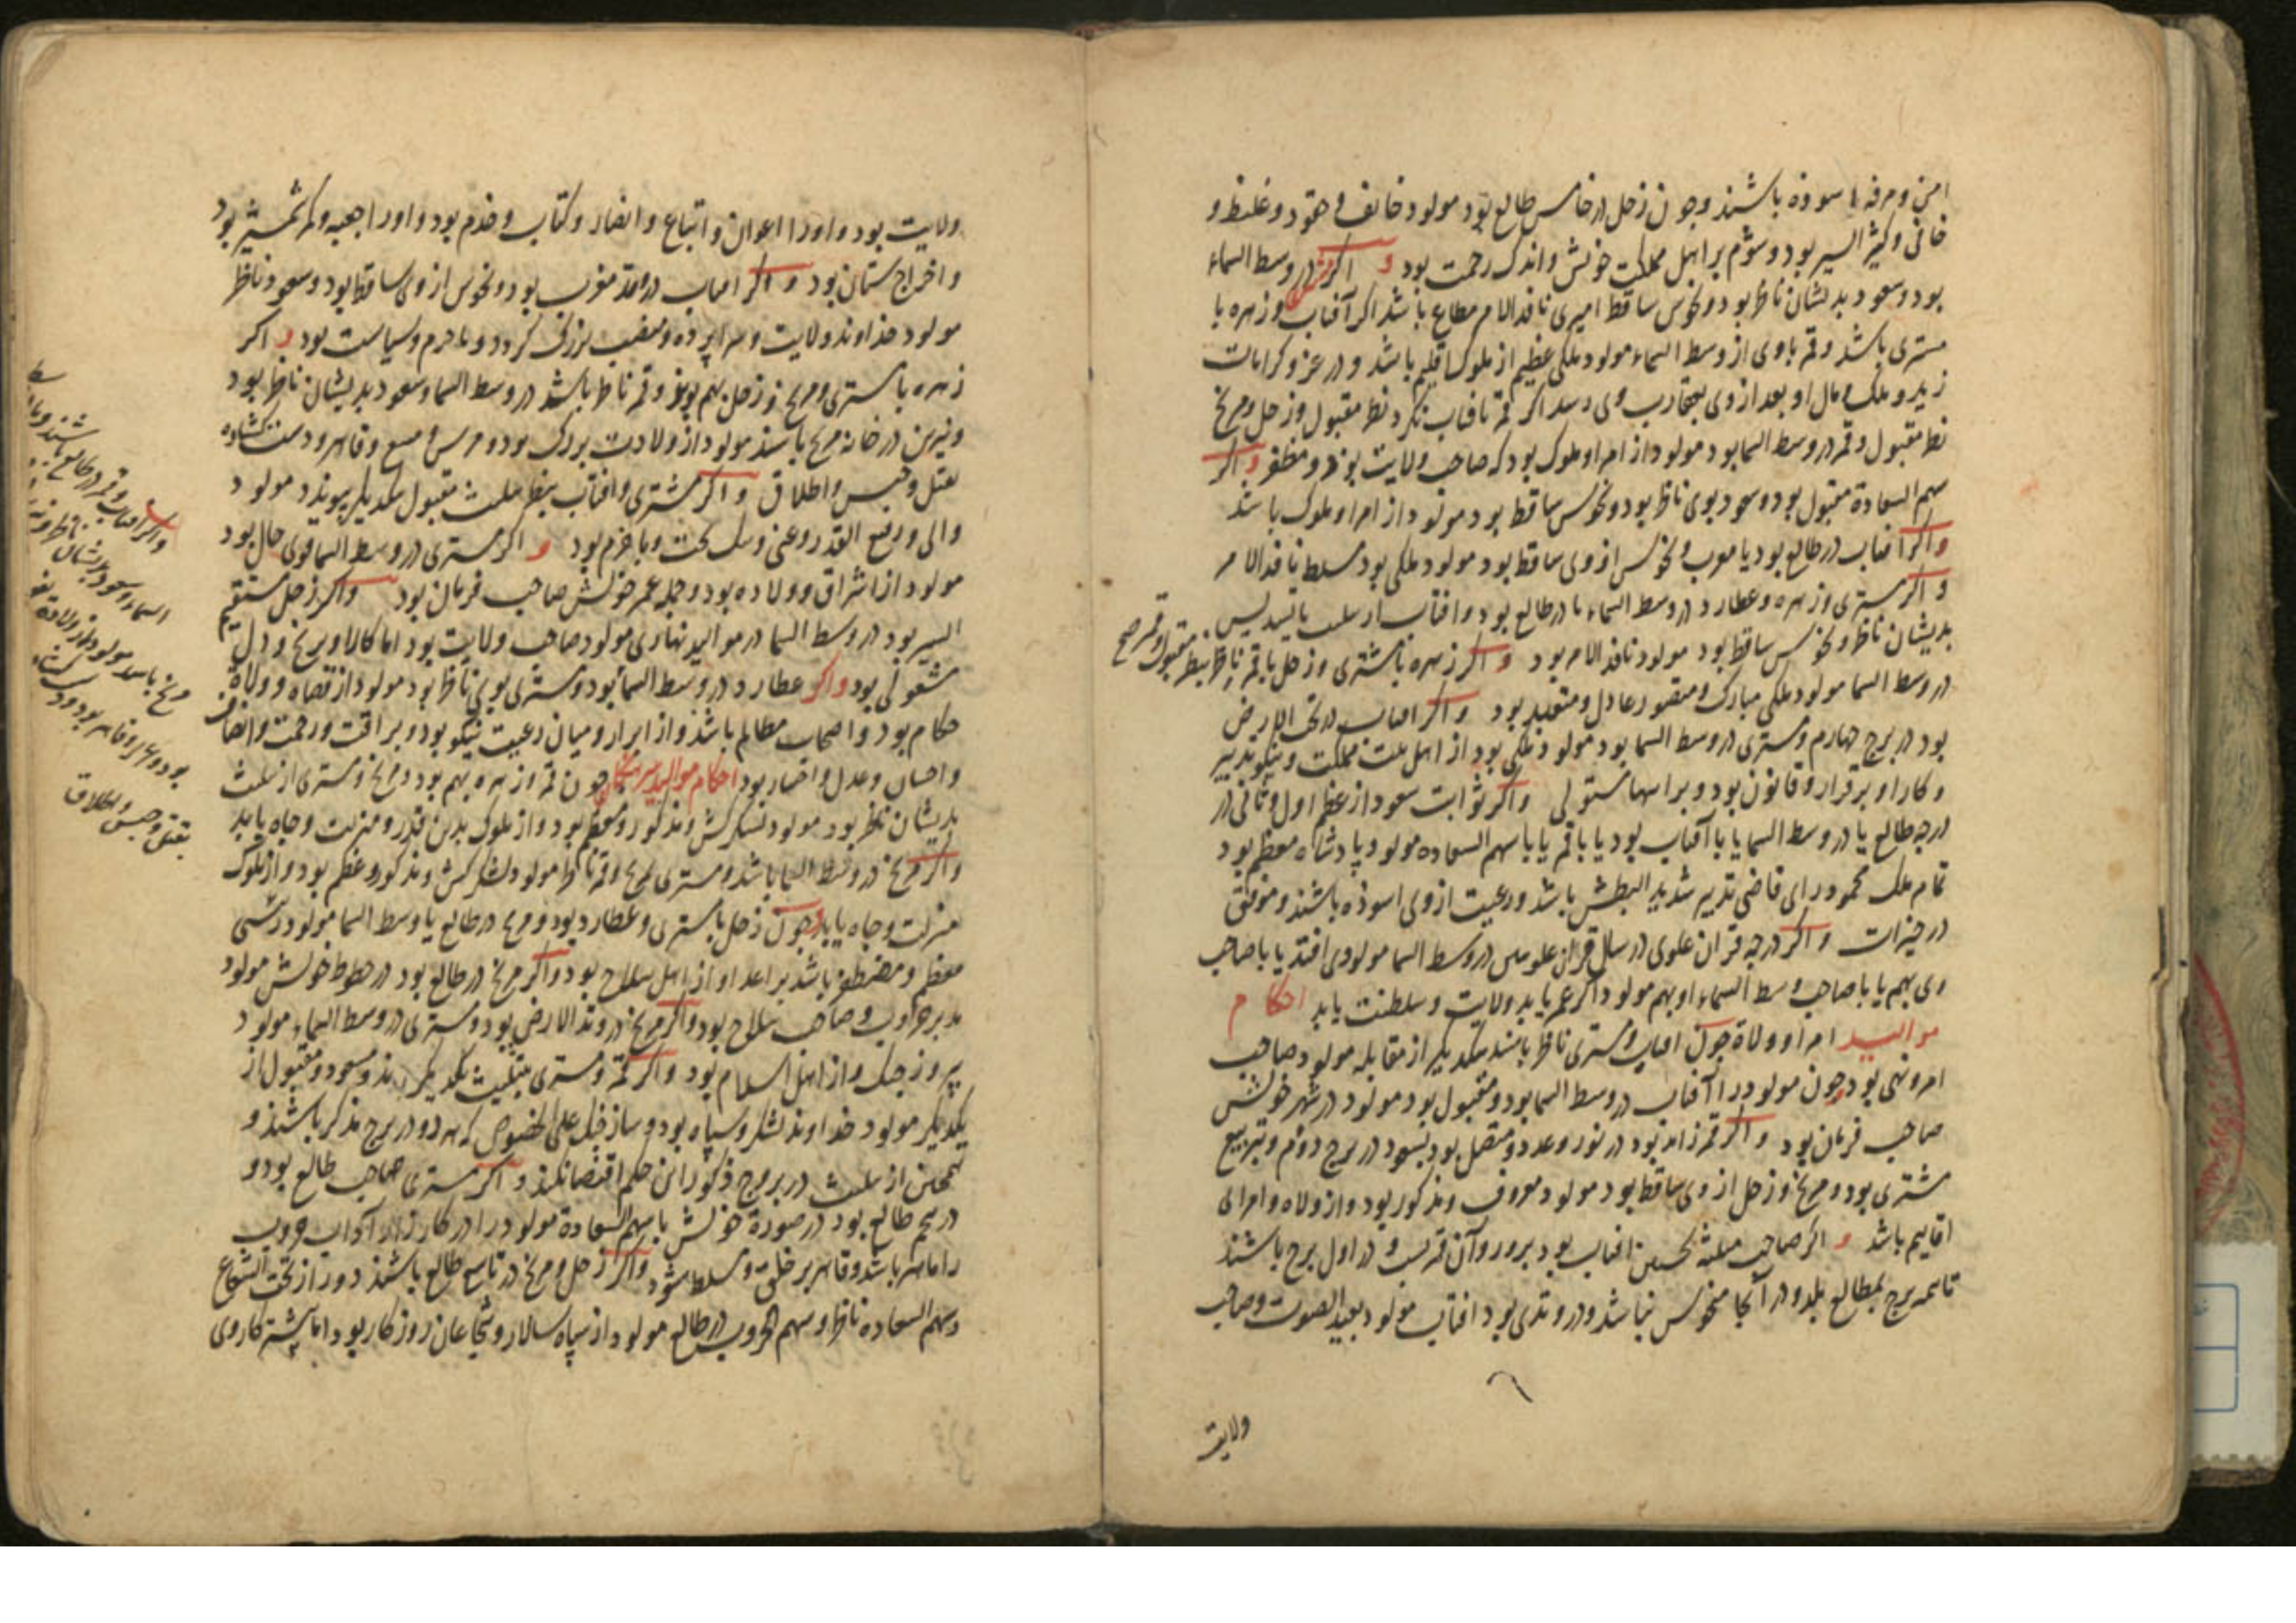 امن و مرفه با سوده باشند و چون زحل در خامس طالع بود مولود خائف و حقود و غلیظ و
خائن و کثیر السیر بود و شوم بر اهل مملکت خویش و اندک رحمت بود و اکر در وسط السماء
بود و سعود بدیشان ناظر بود و نحوس ساقط امیری نافد الامر مطاع باشد اکر آفتاب و زهره با
مشتری باشد و قمر با وی از وسط السماء مولود ملکی عظیم از ملوک اقلیم باشد و در عز و کرامات
زید و ملک و مال او بعد از وی بعقارب وی رسد اکر قمر بافتاب نکرد نظر مقبول و زحل و مریخ
نظر مقبول و قمر در وسط السما بود مولود از امرا و ملوک بود که صاحب ولایت بود و مظفر و اکر
سهم السعادة مقبول بود و سعود بوی ناظر بود و نحوس ساقط بود مولود از امرا و ملوک باشد
و اکر افتاب در طالع بود یا مغرب و نحوس از وی ساقط بود مولود ملکی بود مسلط نافد الامر
و اکر مشتری و زهره و عطارد در وسط السماء یا در طالع بود و افتاب از مثلث یا تسدیس
بدیشان ناظر و نحوس ساقط بود مولود نافد الامر بود و اکر زهره با مشتری و زحل با قمر ناظر بنظر مقبول و قمر صح
در وسط السما مولود ملکی مبارک و منصور عادل و متعبد بود و اکر افتاب در تحت الارض
بود در برج چهارم و مشتری در وسط السما بود مولود ملکی بود از اهل بیت مملکت و نیکو تدبیر
و کار او برقرار و قانون بود و براسها مستولی و اکر ثوابت سعود از عظم اول و ثانی در
درجه طالع یا در وسط السما یا با آفتاب بود یا با قمر یا با سهم السعاده مولود پادشاه معظم بود
تمام ملک محمود رای قاضی تدبیر شدید البطش باشد و رعیت از وی اسوده باشند و موفق
در خیرات و اکر درجه قران علوی در سال قران علویین در وسط السما مولودی افتد یا با صاحب
وی بهم یا با صاحب وسط السماء او بهم مولود اکر عمر یابد ولایت و سلطنت یابد احکام
موالید امرا و ولاة چون افتاب و مشتری ناظر باشند بیکدیکر از مقابله مولود صاحب
امر و نهی بود و چون مولود را آفتاب در وسط السما بود و مقبول بود مولود در شهر خویش
صاحب فرمان بود و اکر قمر زاید بود در نور و عدد و متصل بود بسعود در برج دوم و بتربیع
مشتری بود و مریخ و زحل از وی ساقط بود مولود معروف و مذکور بود و از ولاه و امرا ی
اقالیم باشد و اکر صاحب مثلثه نخستین افتاب بود بروز و آن قمر بشب و در اول برج باشند
تا سه برج بمطالع بلد و در آنجا منحوس نباشد و در وتدی بود افتاب مولود بعید الصوت و صاحب
ولایت
ولایت بود و اورا اعوان و اتباع و انصار و کتاب و خدم بود و اورا جعبه و کمر شمشیر بود
و اخراج ستان بود و اکر افتاب در وتد مغرب بود و نحوس از وی ساقط بود و سعود ناظر
مولود خداوند ولایت و سراپرده و منصب بزرکی کردد و با حزم و سیاست بود و اکر
زهره با مشتری و مریخ و زحل بهم بود و قمر ناظر باشد در وسط السما و سعود بدیشان ناظر بود
و نیرین در خانه مریخ باشند مولود از ولادت بزرک بود و قاهر و دست کشاده
بقتل و حبس و اطلاق و اکر مشتری و افتاب بنظر مثلث مقبول بیکدیکر پیوندد مولود
والی و رفیع القدر و غنی و نیک بخت و با حزم بود و اکر مشتری در وسط السما قوی حال بود
مولود از اشراق و ولاده بود و جمله عمر خویش صاحب فرمان بود و اکر زحل مستقیم
السیر بود در وسط السما در موالید نهاری مولود صاحب ولایت بود اما کار او برنج و دل
مشغولی بود و اکر عطارد در وسط السما بود و مشتری بوی ناظر بود مولود از قضاه و ولاة
حکام بود و اصحاب مظالم باشد و از ابرار و میان رعیت نیکو بود و برافت و رحمت و انصاف
و احسان و عدل و اختیار بود احکام موالید سرهنکان چون قمر و زهره بهم بود و مریخ و مشتری از مثلث
بدیشان ناظر بود مولود لشکرکش و مذکور و معظم بود و از ملوک بدین قدر و منزلت و جاه یابد
و اکر مریخ در وسط السما باشد و مشتری بمریخ و قمر ناظر مولود لشکر کش و مذکور و عظیم بود و از ملوک
منزلت و جاه یابد و چون زحل با مشتری و عطارد بود و مریخ در طالع یا وسط السما مولود رئیسی
معظم و مضطر باشد بر اعدا و از اهل سلاح بود و اکر مریخ در طالع بود در حظوظ خویش مولود
مدبر حروب و صاحب سلاح بود و اکر مریخ در وتد الارض بود و مشتری در وسط السماء مولود
پیروز جنک و از اهل اسلام بود و اکر قمر و مشتری بتثلیث یکدیکر بوند و مسعود و مقبول از
یکدیکر مولود خداوند لشکر و سپاه بود و ساز جنک علی الخصوص که هر دو در برج مذکر باشند و
همچنین از مثلث در بروج ذکور این حکم اقتضا نکند و اکر مشتری صاحب طالع بود و
در سیم طالع بود در صورة خویش با سهم السعادة مولود را در کارزار آداب حروب
را ماهر باشد و قاهر بر خلق و مسلط شود و اکر زحل و مریخ در تاسع طالع باشند دور از تحت الشعاع
و سهم السعاده ناظر و سهم الحروب در طالع مولود از سپاه سالار و شجاعان روزکار بود اما بیشتر کار وی
و اکر افتاب و قمر در طالع باشند و یا وسط
السماء و سعود بدیشان ناظر بوند
مریخ باشد مولود از ولادة
بود و قاهر بود و دست کشاده
بقتل و حبس و اطلاق